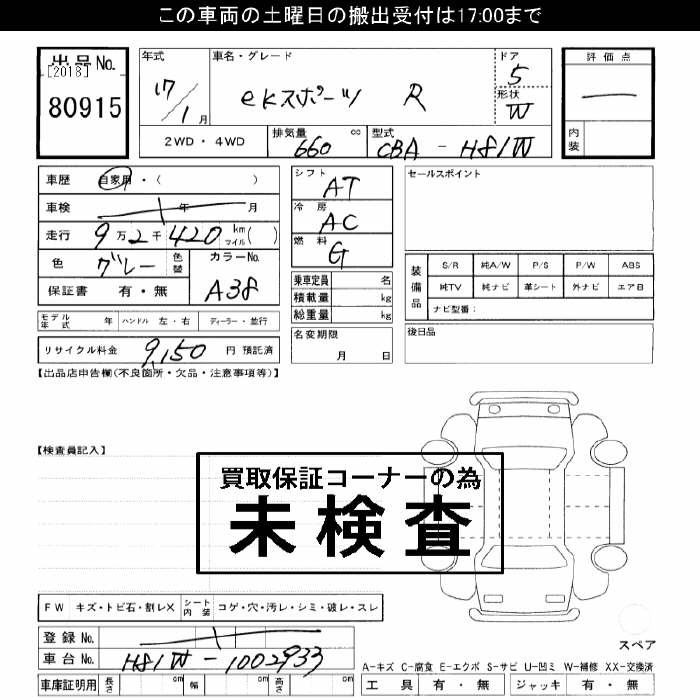 この車両の土曜日の搬出受付は17:00まで
出品No. 年式 車名・グレード ドア 評価点
[2018] 17/1月 eKスポーツ R 5
80915 形状 W
2WD・4WD 排気量 660 cc 型式 CBA-H81W 内装
車歴 自家用・( ) シフト AT セールスポイント
車検 年 月 冷房 AC
走行 9万2千420 km マイル( ) 燃料 G
色 グレー 色替 カラーNo. A38
保証書 有・無
乗車定員 名 装備品 S/R 純A/W P/S P/W ABS
積載量 kg 純TV 純ナビ 革シート 外ナビ エアB
総重量 kg ナビ型番:
モデル年式 年 ハンドル 左・右 ディーラー・並行 名変期限 月 日 後日品
リサイクル料金 9,150 円 預託済
【出品店申告欄(不良箇所・欠品・注意事項等)】
【検査員記入】
買取保証コーナーの為
未検査
FW キズ・トビ石・割レX シート内装 コゲ・穴・汚レ・シミ・破レ・スレ
登録No.
スペア
車台No. H81W-1002933
A-キズ C-腐食 E-エクボ S-サビ U-凹ミ W-補修 XX-交換済
車庫証明用 長さ cm 幅 cm 高さ cm 工具 有・無 ジャッキ 有・無